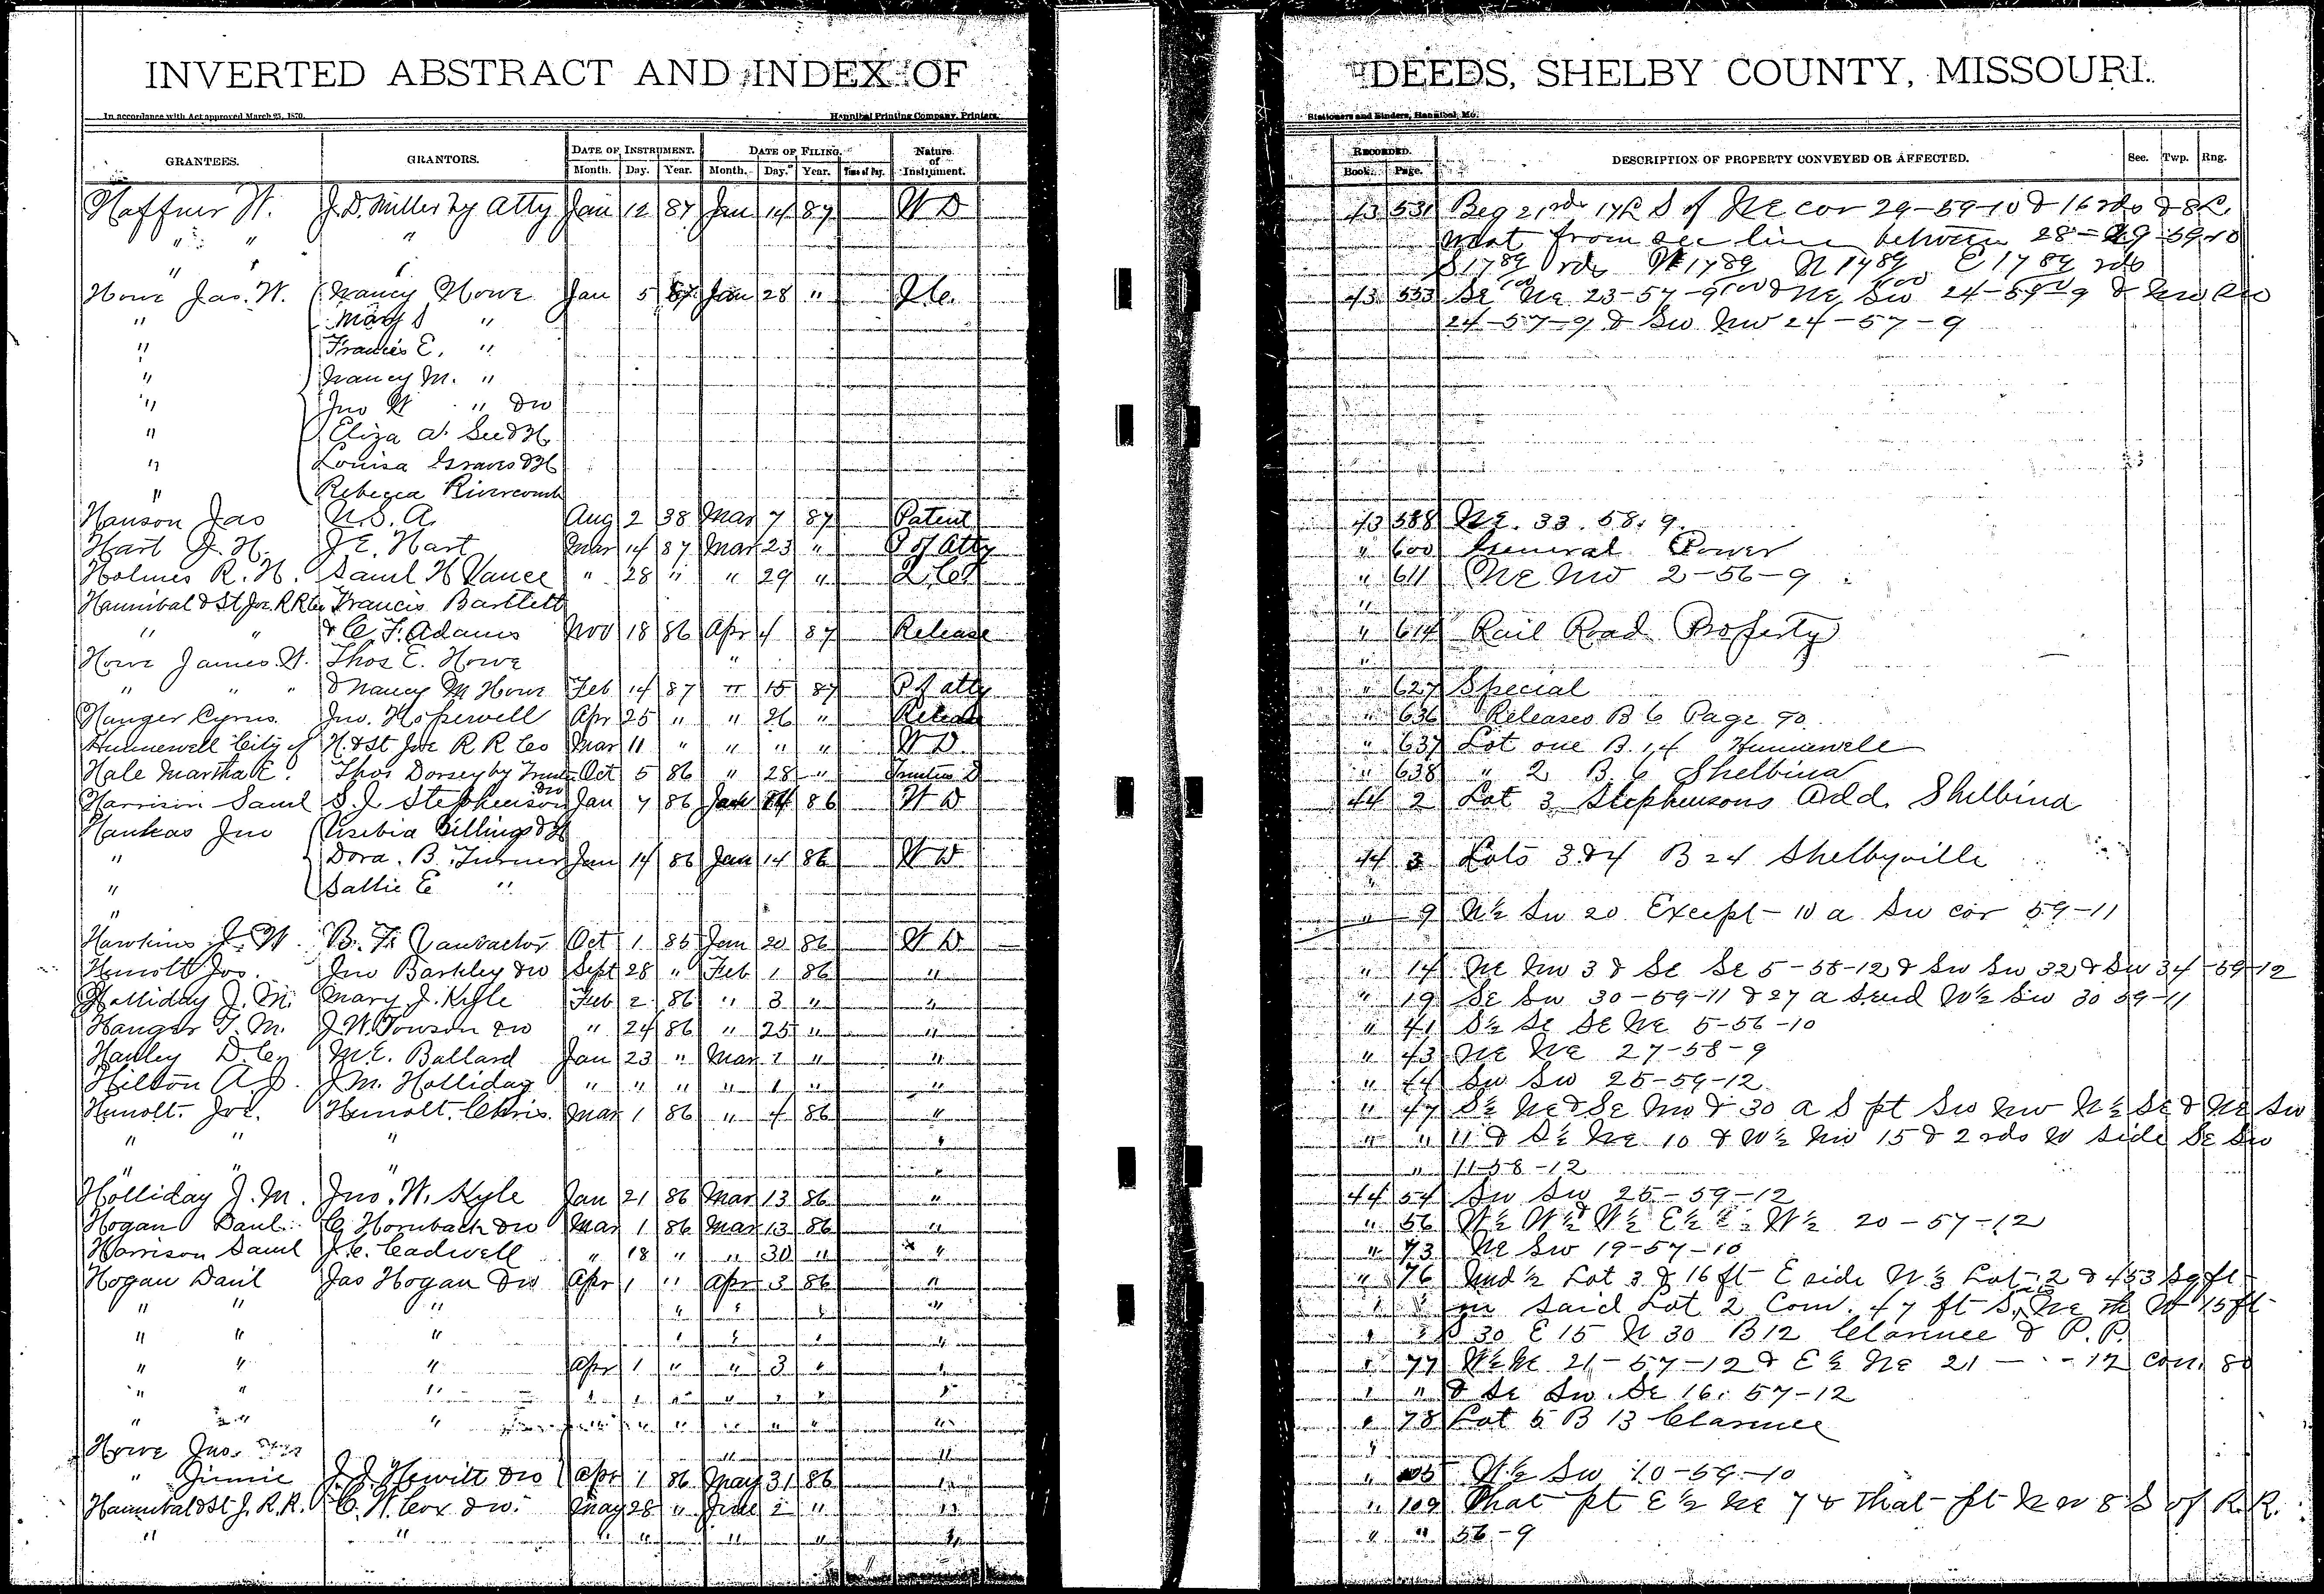 INVERTED ABSTRACT AND INDEX OF DEEDS, SHELBY COUNTY, MISSOURI.
In accordance with Act approved March 25, 1870. Hannibal Printing Company, Printers, Stationers and Binders, Hannibal, Mo.
GRANTEES. GRANTORS. DATE OF INSTRUMENT. DATE OF FILING. Nature of Instrument. RECORDED. DESCRIPTION OF PROPERTY CONVEYED OR AFFECTED. Sec. Twp. Rng.
Month. Day. Year. Month. Day. Year. Time of Day. Book. Page.
Haffner W. J. D. Miller by Atty Jan 12 87 Jan 14 87 W D 43 531 Beg 21 rds 17 L S of NE cor 29-59-10 & 16 rds & 8 L
" " " West from sec line between 28-29 59-10
" " " S 17 89/100 rds W 17 89/100 N 17 89/100 E 17 89/100 rds
Howe Jas. W. Nancy Howe Jan 5 87 Jan 28 " 43 553 SE NE 23-57-9 & NE SW 24-57-9 & NW SW
" Mary S " 24-57-9 & SW NW 24-57-9
" Francis E. "
" Nancy M. "
" Jno W " & w
" Eliza A. See & H
" Louisa Graves & H
" Rebecca Rivercomb
Hanson Jas U.S.A. Aug 2 38 Mar 7 87 Patent 43 588 NE. 33. 58. 9.
Hart J. H. J. E. Hart Mar 14 87 Mar 23 " P of Atty " 600 General Power
Holmes R. H. Saml H Vance " 28 " " 29 " " 611 NE NW 2-56-9
Hannibal & St Joe. R R Co Francis Bartlett "
" " & C. F. Adams Nov 18 86 Apr 4 87 Release " 614 Rail Road Property
Howe James W. Thos E. Howe " "
" " " & Nancy M Howe Feb 14 87 " 15 87 P of atty " 627 Special
Hanger Cyrus. Jno. Hopewell Apr 25 " " 26 " Release " 636 Releases B 6 Page 90.
Hunnewell City of H. & St Joe R R Co Mar 11 " " " " W D. " 637 Lot one B. 14 Hunnewell
Hale Martha E. Thos Dorsey by Trustee Oct 5 86 " 28 " Trustees D " 638 " 2 B 6 Shelbina
Harrison Saml S. J. Stephenson & w Jan 7 86 Jan 14 86 W D 44 2 Lot 3 Stephensons Add. Shelbina
Hankas Jno Usebia Billings & H
" Dora. B. Turner Jan 14 86 Jan 14 86 W D 44 3 Lots 3 & 4 B 24 Shelbyville
" Sallie E "
" " 9 N½ SW 20 Except 10 a SW cor 59-11
Hawkins J. W. B. F. Oct 1 85 Jan 20 86 W D
Hunolt Jos. Jno Barkley & w Sept 28 " Feb 1 86 " " 14 NE NW 3 & SE SE 5-58-12 & SW SW 32 & SW 34-59-12
Holliday J. M. Mary J. Kyle Feb 2 86 " 3 " " " 19 SE SW 30-59-11 & 27 a S end W½ SW 30 59-11
Hanger T. M. J. W. Towson & w " 24 86 " 25 " " " 41 S½ SE SE NE 5-56-10
Hanley D. C. M. E. Ballard Jan 23 " Mar 1 " " " 43 NE NE 27-58-9
Hilton A. J. J. M. Holliday " " " " 1 " " " 44 SW SW 25-59-12
Hunolt. Joe. Hunolt. Chris. Mar 1 86 " 4 86 " " 47 S½ NE & SE NW & 30 a S pt SW NW N½ SE & NE SW
" " " " " " 11 & S½ NE 10 & W½ NW 15 & 2 rds W side SE SW
" " " " " 11-58-12
Holliday J. M. Jno. W. Kyle Jan 21 86 Mar 13 86 " 44 54 SW SW 25-59-12
Hogan Danl. C. Hornback & w Mar 1 86 Mar 13 86 " " 56 W½ W½ & W½ E½ W½ 20-57-12
Harrison Saml J. C. Cadwell " 18 " " 30 " " " 73 NE SW 19-57-10
Hogan Danl Jas Hogan & w Apr 1 " Apr 3 86 " " 76 Und ½ Lot 3 & 16 ft E side W⅓ Lot 2 & 453 sq ft
" " " " " " " " " in said Lot 2 Com. 47 ft S. NE th W 15 ft
" " " " " " " " " S 30 E 15 N 30 B 12 Clarence & P. P.
" " " Apr 1 " " 3 " " " 77 W½ NE 21-57-12 & E½ NE 21 - " - 12 con. 80
" " " " " " " " " " " " & SE SW. SE 16. 57-12
" " " " " " " " " " " 78 Lot 5 B 13 Clarence
Howe Jno. " " "
" Jinnie J. J. Hewitt & w Apr 1 86 May 31 86 " " 105 W½ SW 10-59-10
Hannibal & St J. R. R. C. W. Cox & w. May 28 " June 2 " " " 109 That pt E½ NE 7 & That pt NW 8 S of R. R.
" " " " " " " " " " 56-9